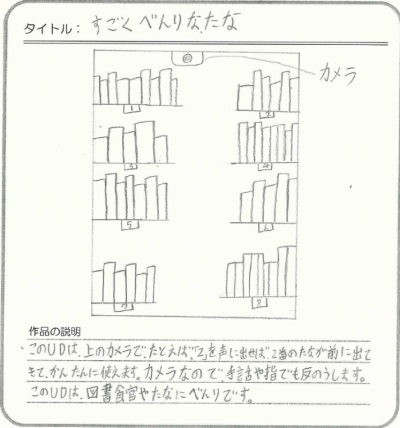 タイトル: すごくべんりな、たな
カメラ
1
2
3
4
5
6
7
8
作品の説明
このUDは、上のカメラで、たとえば、「2」を声に出せば、2番のたなが前に出て
きて、かんたんに使えます。カメラなので、手話や指でも反のうします。
このUDは、図書館やたなにべんりです。